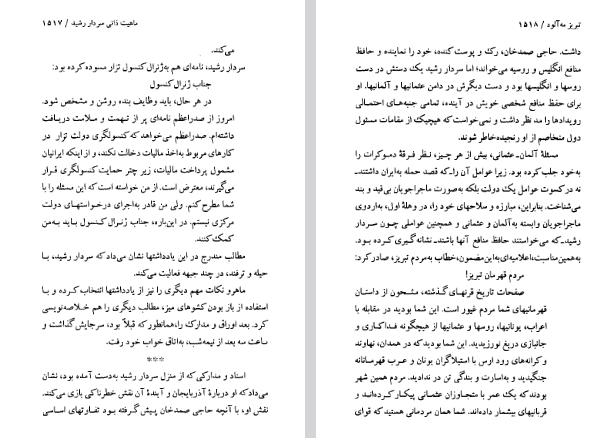 ماهیت ذاتی سردار رشید / ۱۵۱۷
می‌کند.
سردار رشید، نامه‌ای هم به‌ژنرال کنسول تزار مسوده کرده بود:
جناب ژنرال کنسول
در هر حال، باید وظایف بنده روشن و مشخص شود.
امروز از صدراعظم نامه‌ای پر از تهمت و ملامت دریافت
داشته‌ام. صدراعظم می‌خواهد که کنسولگری دولت تزار در
کارهای مربوط به‌اخذ مالیات دخالت نکند، و از اینکه ایرانیان
مشمول پرداخت مالیات، زیر چتر حمایت کنسولگری قرار
می‌گیرند، معترض است. از من خواسته است که این مسئله را با
شما مطرح کنم. ولی من قادر به‌اجرای درخواستهای دولت
مرکزی نیستم. در این‌باره، جناب ژنرال کنسول باید به‌من
کمک کنند.
مطالب مندرج در این یادداشتها نشان می‌داد که سردار رشید، با
حیله و ترفند، در چند جبهه فعالیت می‌کند.
ماهرو نکات مهم دیگری را نیز از یادداشتها انتخاب کرده و با
استفاده از باز بودن کشوهای میز، مطالب دیگری را هم خلاصه‌نویسی
کرد. بعد اوراق و مدارک را، همانطور که قبلاً بود، سرجایش گذاشت و
ساعت سه بعد از نیمه‌شب، به‌اتاق خواب خود رفت.
***
اسناد و مدارکی که از منزل سردار رشید به‌دست آمده بود، نشان
می‌داد که او دربارهٔ آذربایجان و آیندهٔ آن نقش خطرناکی بازی می‌کند.
نقش او، با آنچه حاجی صمدخان پیش گرفته بود تفاوتهای اساسی
تبریز مه‌آلود / ۱۵۱۸
داشت. حاجی صمدخان، رک و پوست کنده، خود را نماینده و حافظ
منافع انگلیس و روسیه می‌خواند؛ اما سردار رشید یک دستش در دست
روسها و انگلیسها بود و دست دیگرش در دامن عثمانیها و آلمانیها. او
برای حفظ منافع شخصی خویش در آینده، تمامی جنبه‌های احتمالی
رویدادها را مد نظر داشت و نمی‌خواست که هیچیک از مقامات مسئول
دول متخاصم از او رنجیده‌خاطر شوند.
مسئلهٔ آلمان-عثمانی، بیش از هر چیز، نظر فرقهٔ دموکرات را
به‌خود جلب کرده بود. زیرا عوامل آن را-که قصد حمله به‌ایران داشتند-
نه در کسوت عوامل یک دولت بلکه به‌صورت ماجراجویان بی‌قید و بند
می‌شناخت. بنابراین، مبارزه و سلاحهای خود را، در وهلهٔ اول، به‌اردوی
ماجراجویان وابسته به‌آلمان و عثمانی و همچنین عواملی چون سردار
رشید-که می‌خواستند حافظ منافع آنها باشند-نشانه‌گیری کرده بود.
به‌همین مناسبت، اعلامیه‌ای به‌این مضمون، خطاب به‌مردم تبریز، صادر کرد:
مردم قهرمان تبریز!
صفحات تاریخ قرنهای گذشته، مشحون از داستان
قهرمانیهای شما مردم غیور است. این شما بودید در مقابله با
اعراب، یونانیها، روسها و عثمانیها از هیچگونه فداکاری و
جانبازی دریغ نورزیدید. این شما بودید که در همدان، نهاوند
و کرانه‌های رود اوس با استیلاگران یونان و عرب قهرمانانه
جنگیدید و به‌اسارت و بندگی تن در ندادید. مردم همین شهر
بودند که یک عمر با متجاوزان عثمانی پیکار کرده‌اند و
قربانیهای بیشمار داده‌اند. شما همان مردمانی هستید که قوای